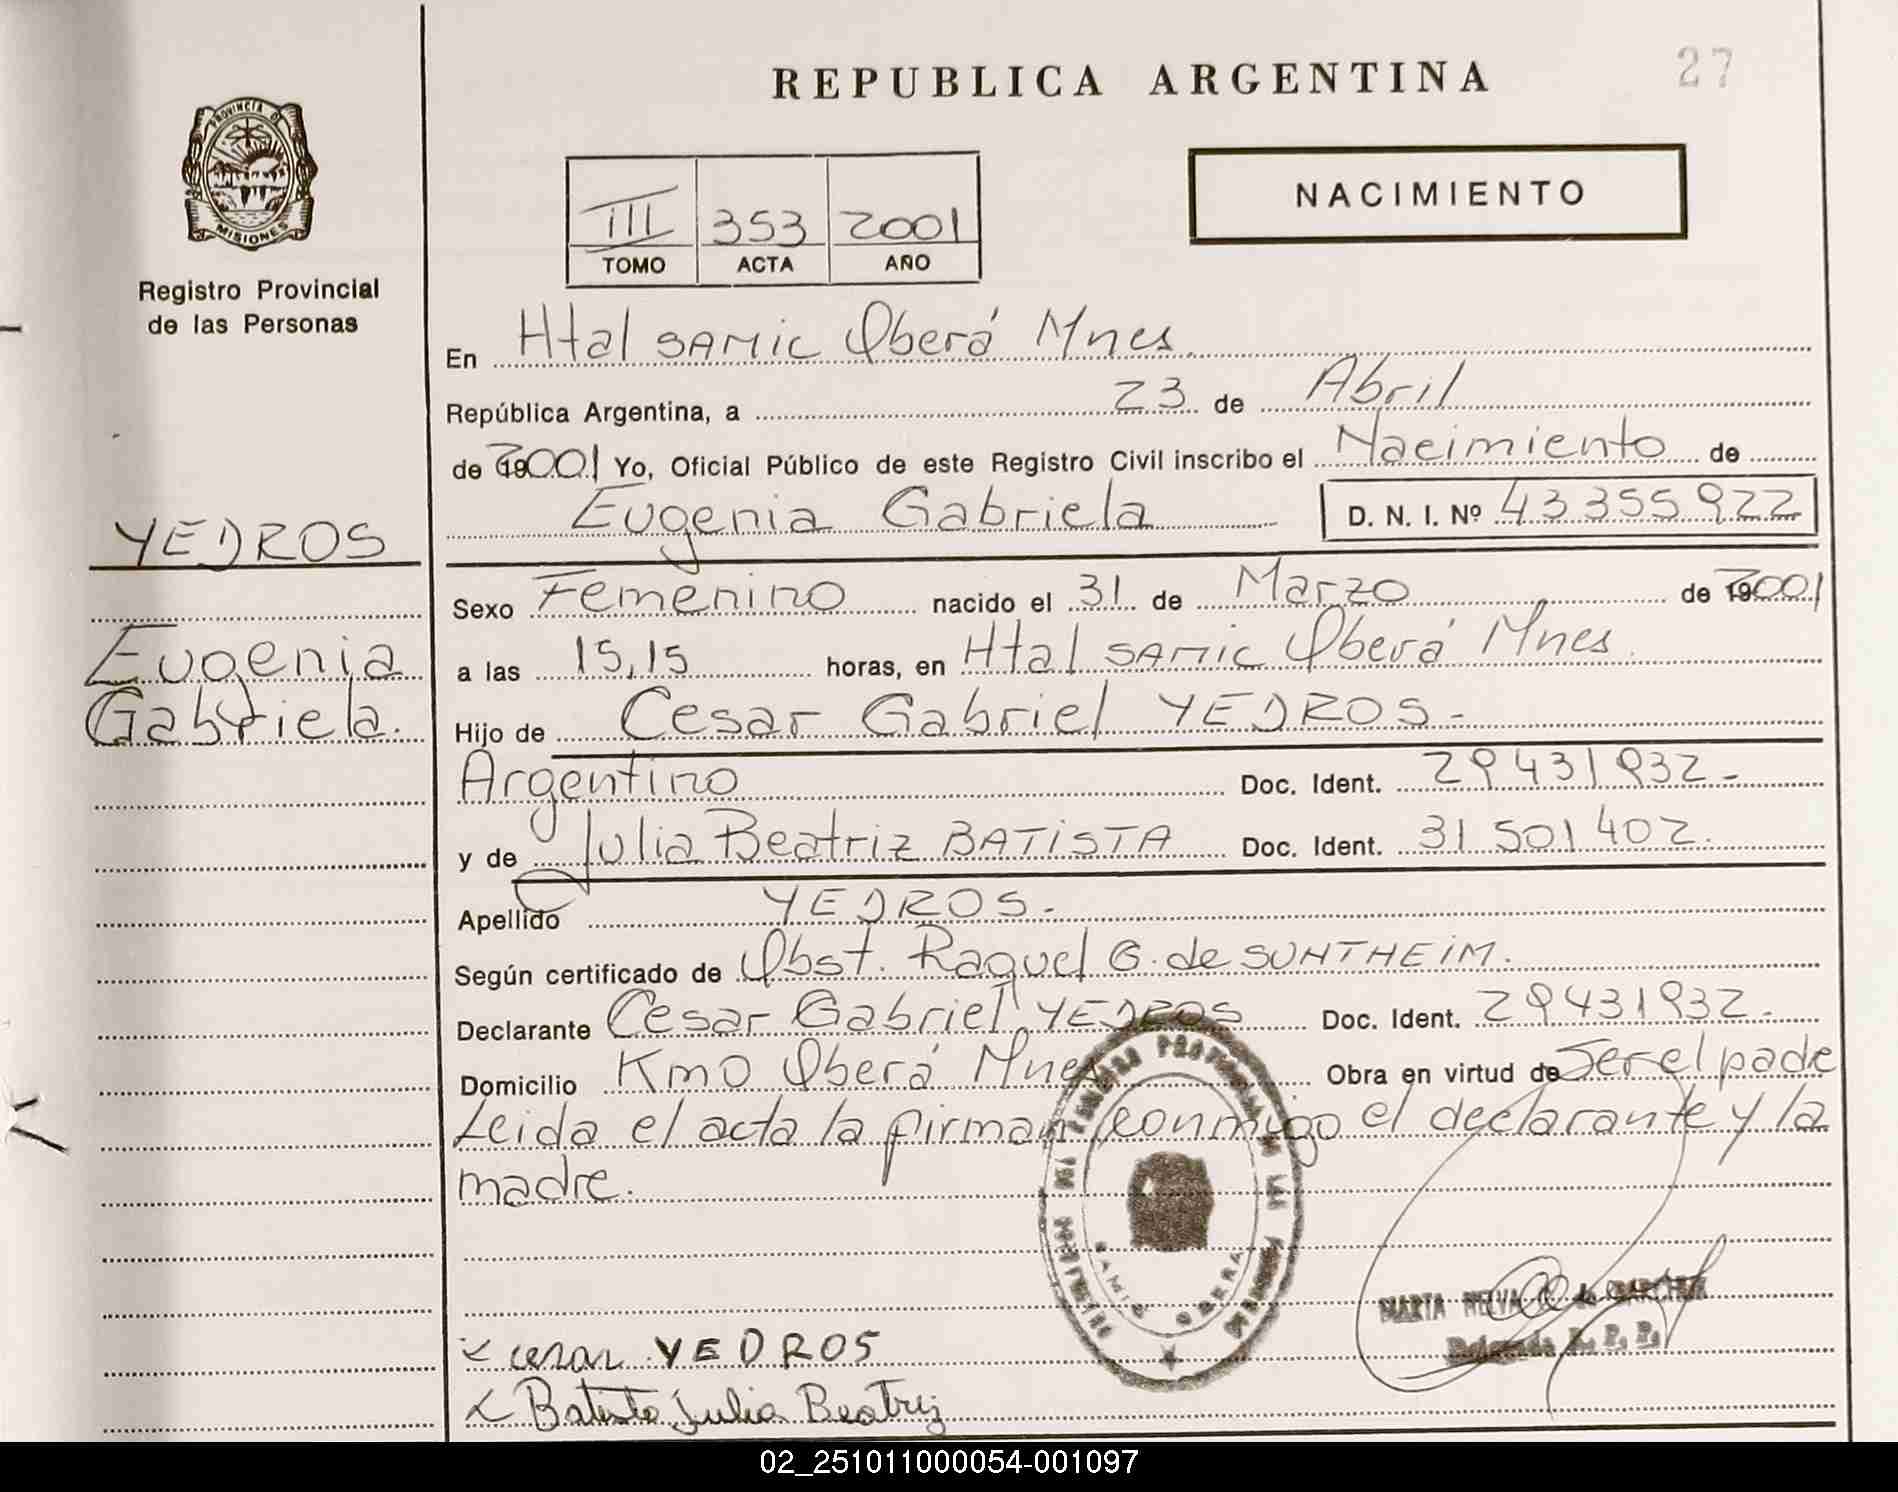 REPUBLICA ARGENTINA
27
PROVINCIA DE
MISIONES
Registro Provincial
de las Personas
III 353 2001
TOMO ACTA AÑO
NACIMIENTO
En Htal SAMIC Oberá Mnes.
República Argentina, a 23 de Abril
de 2001 Yo, Oficial Público de este Registro Civil inscribo el Nacimiento de
Eugenia Gabriela D. N. I. Nº 43355922
YEDROS
Eugenia
Gabriela.
Sexo Femenino nacido el 31 de Marzo de 2001
a las 15,15 horas, en Htal SAMIC Oberá Mnes.
Hijo de Cesar Gabriel YEDROS-
Argentino Doc. Ident. 29431932-
y de Julia Beatriz BATISTA Doc. Ident. 31501402.
Apellido YEDROS.
Según certificado de Obst. Raquel G. de SUNTHEIM.
Declarante Cesar Gabriel YEDROS Doc. Ident. 29431932.
Domicilio Km0 Oberá Mnes Obra en virtud de Ser el padre
Leida el acta la firman conmigo el declarante y la
madre.
SAMIC OBERA
MARTA NELVA de
Delegada R. P. P.
cesar YEDROS
Batista Julia Beatriz
02_251011000054-001097